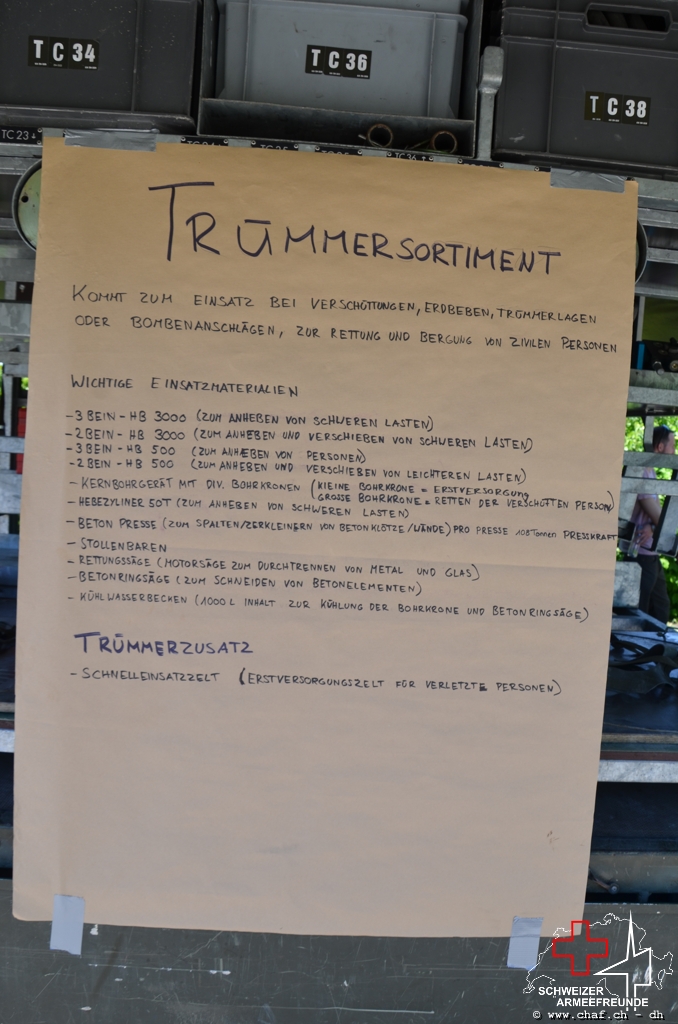 TC 34
TC 36
TC 38
TC 23
TRÜMMERSORTIMENT
KOMMT ZUM EINSATZ BEI VERSCHÜTTUNGEN, ERDBEBEN, TRÜMMERLAGEN
ODER BOMBENANSCHLÄGEN, ZUR RETTUNG UND BERGUNG VON ZIVILEN PERSONEN
WICHTIGE EINSATZMATERIALIEN
-3 BEIN-HB 3000 (ZUM ANHEBEN VON SCHWEREN LASTEN)
-2 BEIN-HB 3000 (ZUM ANHEBEN UND VERSCHIEBEN VON SCHWEREN LASTEN)
-3 BEIN-HB 500 (ZUM ANHEBEN VON PERSONEN)
-2 BEIN-HB 500 (ZUM ANHEBEN UND VERSCHIEBEN VON LEICHTEREN LASTEN)
- KERNBOHRGERÄT MIT DIV. BOHRKRONEN (KLEINE BOHRKRONE = ERSTVERSORGUNG
GROSSE BOHRKRONE = RETTEN DER VERSCHÜTTEN PERSON)
- HEBEZYLINER 50T (ZUM ANHEBEN VON SCHWEREN LASTEN)
- BETON PRESSE (ZUM SPALTEN/ZERKLEINERN VON BETONKLÖTZE/WÄNDE) PRO PRESSE 108 Tonnen PRESSKRAFT
- STOLLENBAREN
- RETTUNGSSÄGE (MOTORSÄGE ZUM DURCHTRENNEN VON METAL UND GLAS)
- BETONRINGSÄGE (ZUM SCHNEIDEN VON BETONELEMENTEN)
- KÜHLWASSERBECKEN (1000 L INHALT ZUR KÜHLUNG DER BOHRKRONE UND BETONRINGSÄGE)
TRÜMMERZUSATZ
- SCHNELLEINSATZZELT (ERSTVERSORGUNGSZELT FÜR VERLETZTE PERSONEN)
SCHWEIZER
ARMEEFREUNDE
© www.chaf.ch - dh